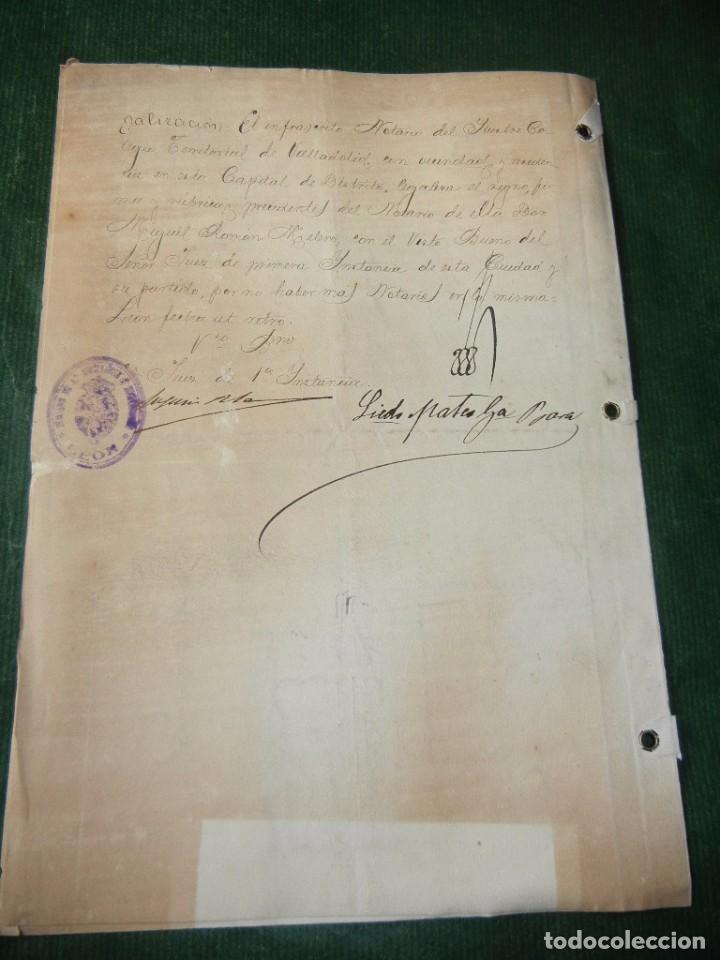 galización. El infrascrito Notario del Ilustre Co-
legio Territorial de Valladolid, con vecindad y residen-
cia en esta Capital de Distrito, legalizo el signo, fir-
ma y rúbrica precedentes del Notario de ella Don
Miguel Román Melero, con el Visto Bueno del
Señor Juez de primera Instancia de esta Ciudad y
su partido, por no haber mas Notarios en la misma-
León fecha ut retro.
Vto Bno
Juez de 1ª Instancia
Licdo Mateo Ga Bara
LEON
todocoleccion
todocoleccion.net